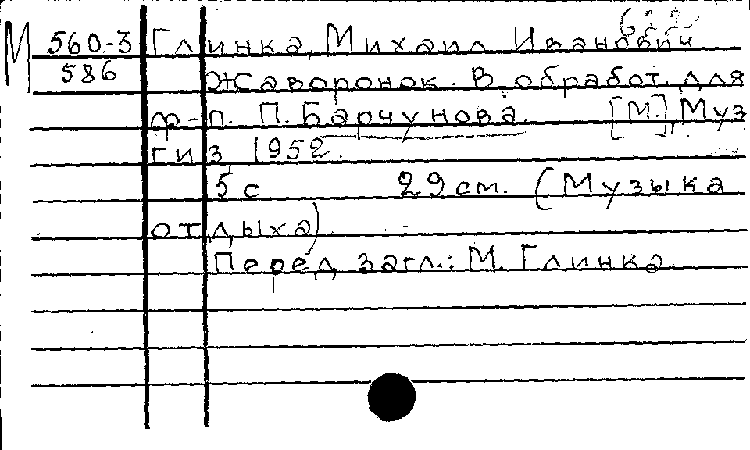 М 560-3 Глинка, Михаил Иванович
586 Жаворонок. В обработ. для
ф-п. П. Барчунова. [М.], Муз
гиз, 1952.
5 с 29 см. (Музыка
отдыха)
Перед загл.: М. Глинка